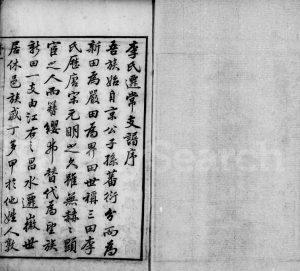 李氏遷常支譜序
吾族始自京公子孫蕃衍分而為
新田為嚴田為界田世稱三田李
氏歷唐宋元明之久雖無赫々顯
宦之人而簪纓弗替代為望族
新田一支由江右之昌水遷徽世
居休邑族盛丁多甲於他姓人敦